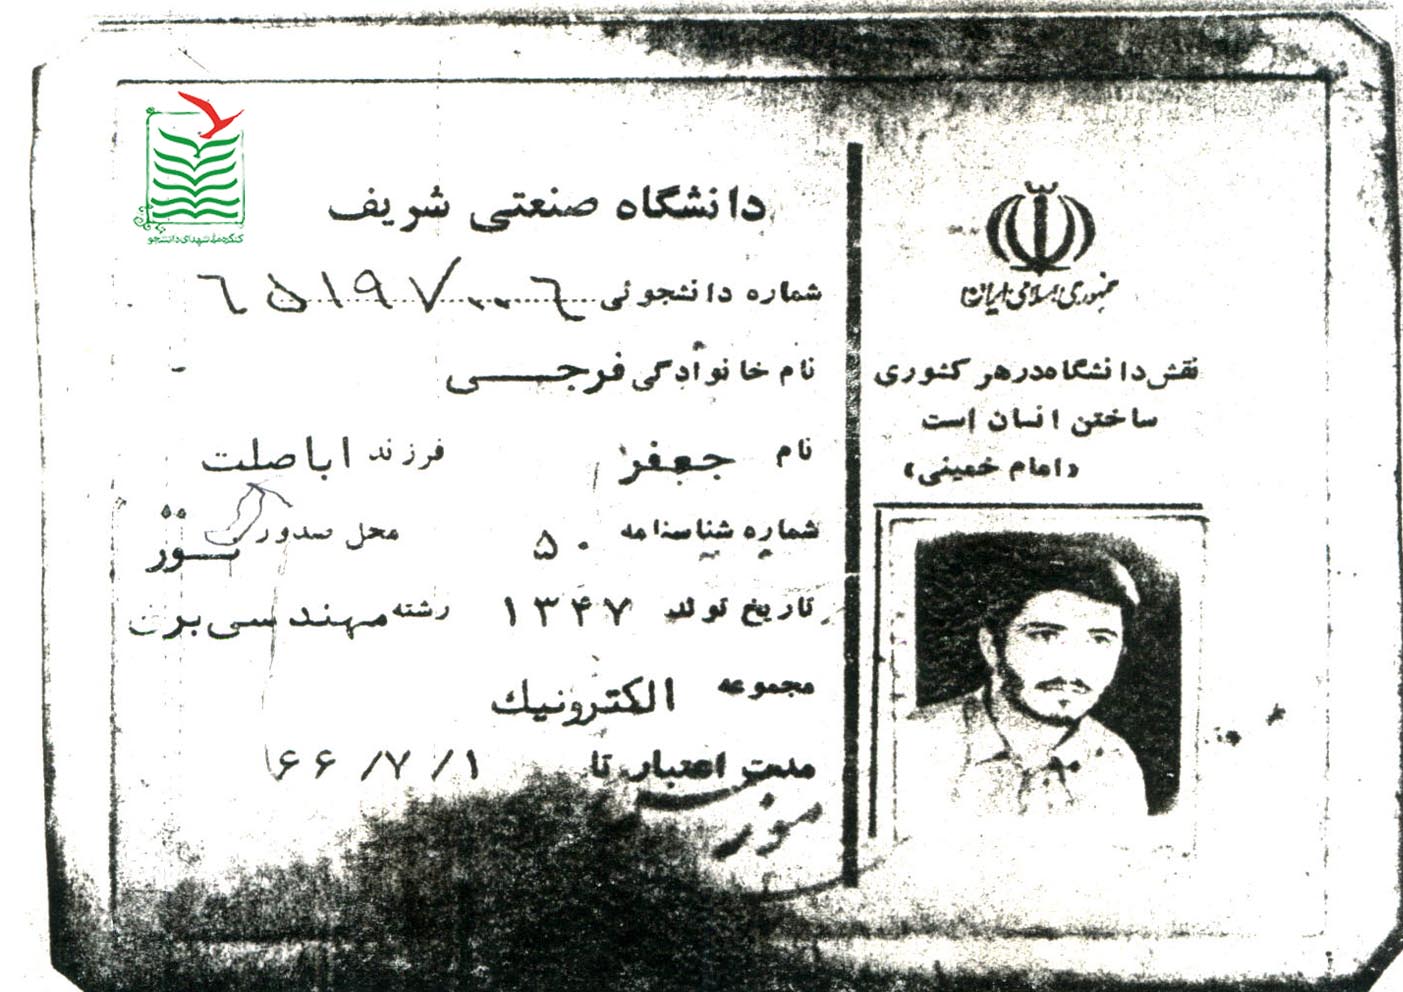 جمهوری اسلامی ایران
نقش دانشگاه در هر کشوری
ساختن انسان است
«امام خمینی»
کنگره ملی شهدای دانشجو
دانشگاه صنعتی شریف
شماره دانشجوئی ٦٥١٩٧٠٠٦
نام خانوادگی فرجی
نام جعفر فرزند اباصلت
شماره شناسنامه ۵۰ محل صدور
تاریخ تولد ۱۳۴۷ رشته مهندسی برق
مجموعه الکترونیك
مدت اعتبار تا ۶۶/۷/۱